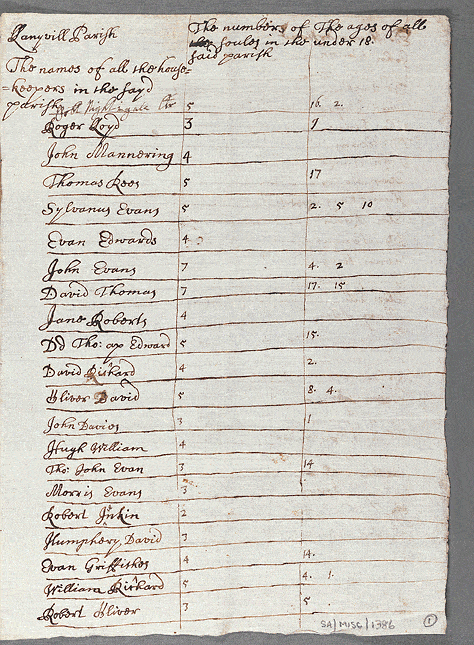 Lanyvill Parish
The names of all the house-
=keepers in the sayd
parish
The numbers of
soules in the
said parish
The ages of all
under 18.
Robt Nightingale Clr 5 16. 2.
Roger Loyd 3 7
John Mannering 4
Thomas Rees 5 17
Sylvanus Evans 5 2. 5 10
Evan Edwards 4
John Evans 7 4. 2
David Thomas 7 17. 15
Jane Roberts 4
Dd Tho: ap Edward 5 15.
David Rickard 4 2.
Oliver David 5 8. 4.
John Davies 3 1
Hugh William 4
Tho: John Evan 3 14
Morris Evans 3
Robert Jnkin 2
Humphery David 3
Evan Griffithes 4 14.
William Rickard 5 4. 1.
Robert Oliver 3 5
SA/MISC/1386
1